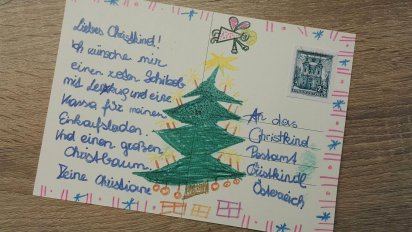 Liebes Christkind!
Ich wünsche mir
einen roten Schibob
mit Lenkung und eine
Kassa für meinen
Einkaufsladen.
Und einen großen
Christbaum.
Deine Christiane
An das
Christkind
Postamt
Christkindl
Österreich